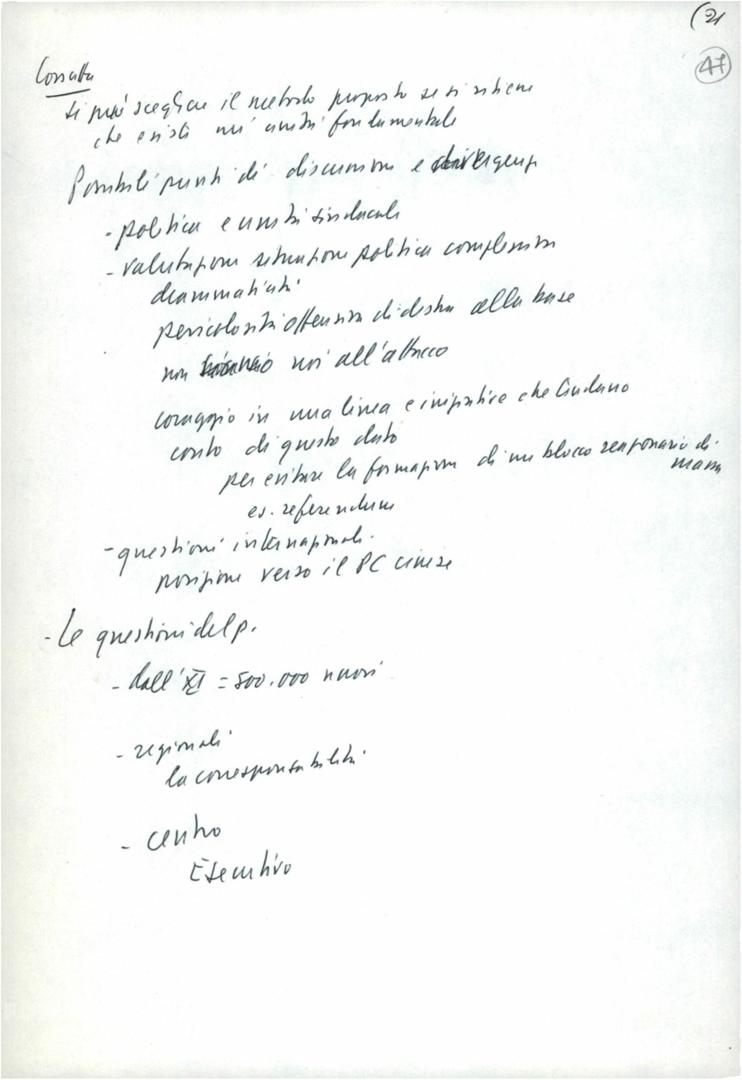 (21
47
Cossutta
si può scegliere il metodo proposto se si ritiene
che esista un'unità fondamentale
Possibili punti di discussione e divergenza
- politica e unità sindacale
- valutazione situazione politica complessiva
drammaticità
pericolosità offensiva di destra alla base
non noi all'attacco
coraggio in una linea e iniziative che tendano
conto di questo dato
per evitare la formazione di un blocco reazionario di
massa
es. referendum
- questioni internazionali.
posizione verso il PC cinese
- Le questioni del p.
- dall'XI = 500.000 nuovi
- regionali
la corresponsabilità
- centro
Esecutivo